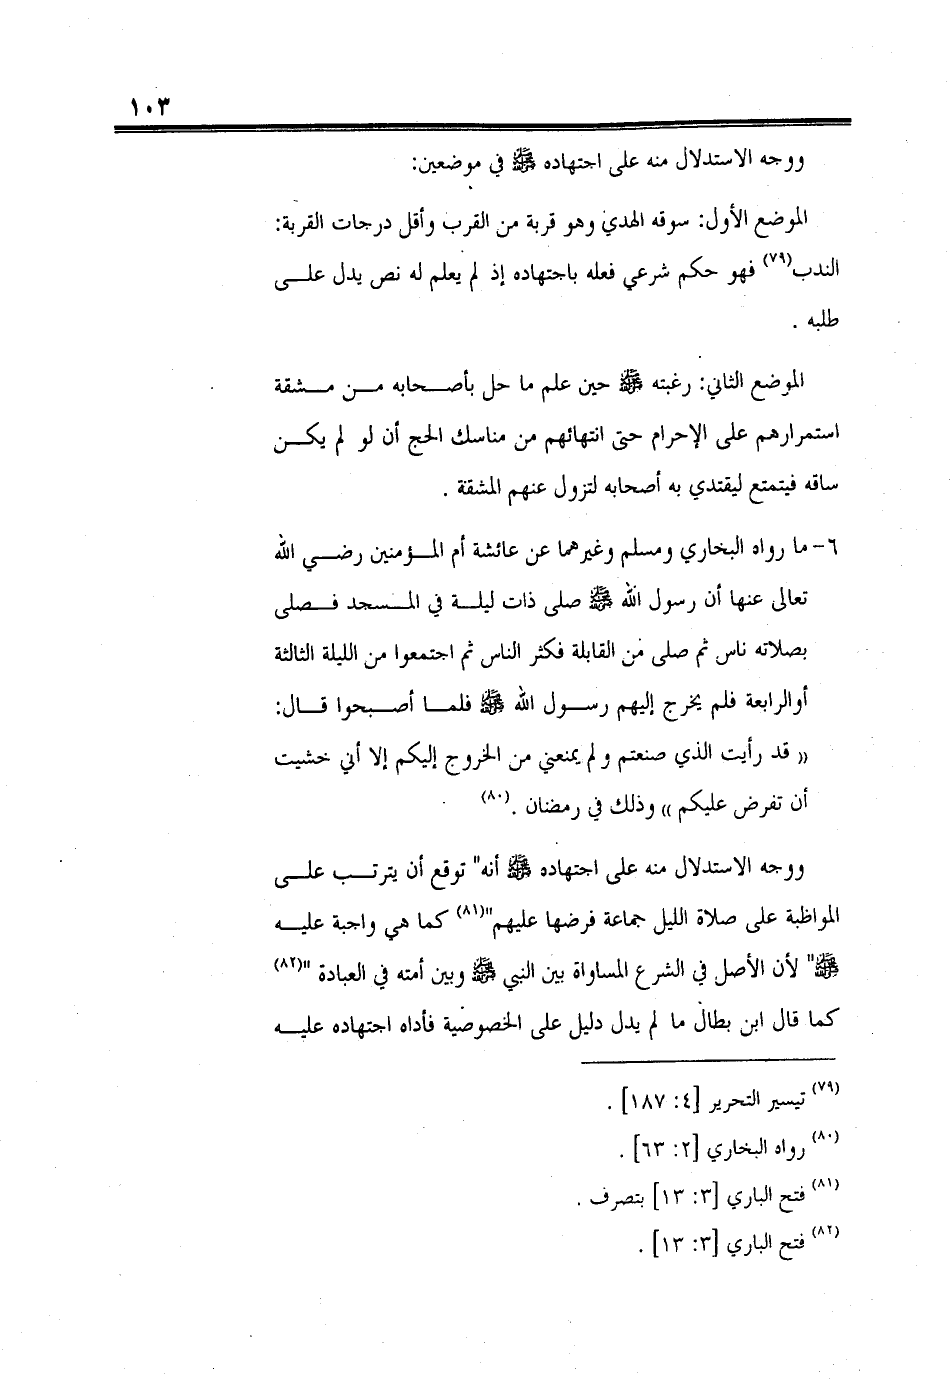 ١٠٣
ووجه الاستدلال منه على اجتهاده ﷺ في موضعين:
الموضع الأول: سوقه الهدي وهو قربة من القرب وأقل درجات القربة:
الندب(٧٩) فهو حكم شرعي فعله باجتهاده إذ لم يعلم له نص يدل علـــى
طلبه .
الموضع الثاني: رغبته ﷺ حين علم ما حل بأصـــحابه مـــن مـــشقة
استمرارهم على الإحرام حتى انتهائهم من مناسك الحج أن لو لم يكـــن
ساقه فيتمتع ليقتدي به أصحابه لتزول عنهم المشقة .
٦- ما رواه البخاري ومسلم وغيرهما عن عائشة أم المـــؤمنين رضـــي الله
تعالى عنها أن رسول الله ﷺ صلى ذات ليلـــة في المـــسجد فـــصلى
بصلاته ناس ثم صلى من القابلة فكثر الناس ثم اجتمعوا من الليلة الثالثة
أوالرابعة فلم يخرج إليهم رســـول الله ﷺ فلمـــا أصـــبحوا قـــال:
(( قد رأيت الذي صنعتم ولم يمنعني من الخروج إليكم إلا أني خشيت
أن تفرض عليكم )) وذلك في رمضان .(٨٠)
ووجه الاستدلال منه على اجتهاده ﷺ أنه" توقع أن يترتـــب علـــى
المواظبة على صلاة الليل جماعة فرضها عليهم"(٨١) كما هي واجبة عليـــه
ﷺ" لأن الأصل في الشرع المساواة بين النبي ﷺ وبين أمته في العبادة "(٨٢)
كما قال ابن بطال ما لم يدل دليل على الخصوصية فأداه اجتهاده عليـــه
(٧٩) تيسير التحرير [٤: ١٨٧] .
(٨٠) رواه البخاري [٢: ٦٣] .
(٨١) فتح الباري [٣: ١٣] بتصرف .
(٨٢) فتح الباري [٣: ١٣] .